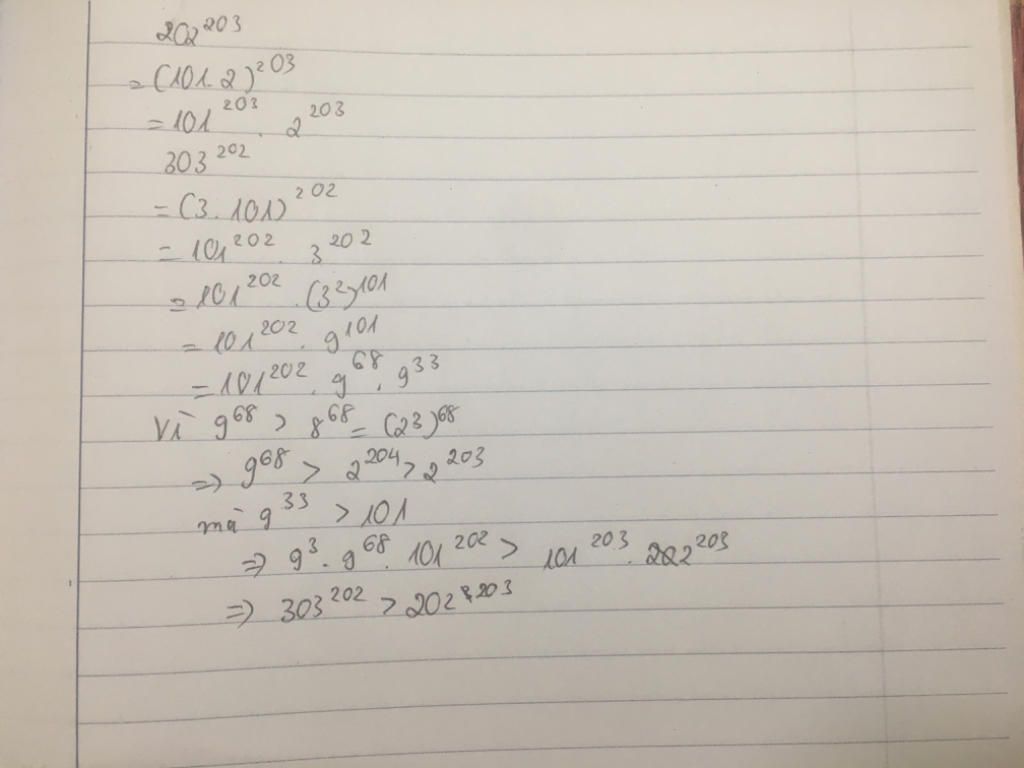 202²⁰³
= (101.2)²⁰³
= 101²⁰³ . 2²⁰³
303²⁰²
= (3.101)²⁰²
= 101²⁰² . 3²⁰²
= 101²⁰² . (3²)¹⁰¹
= 101²⁰² . 9¹⁰¹
= 101²⁰² . 9⁶⁸ . 9³³
Vì 9⁶⁸ > 8⁶⁸ = (2³)⁶⁸
=> 9⁶⁸ > 2²⁰⁴ > 2²⁰³
mà 9³³ > 101
=> 9³ . 9⁶⁸ . 101²⁰² > 101²⁰³ .
=> 303²⁰² > 202²⁰³